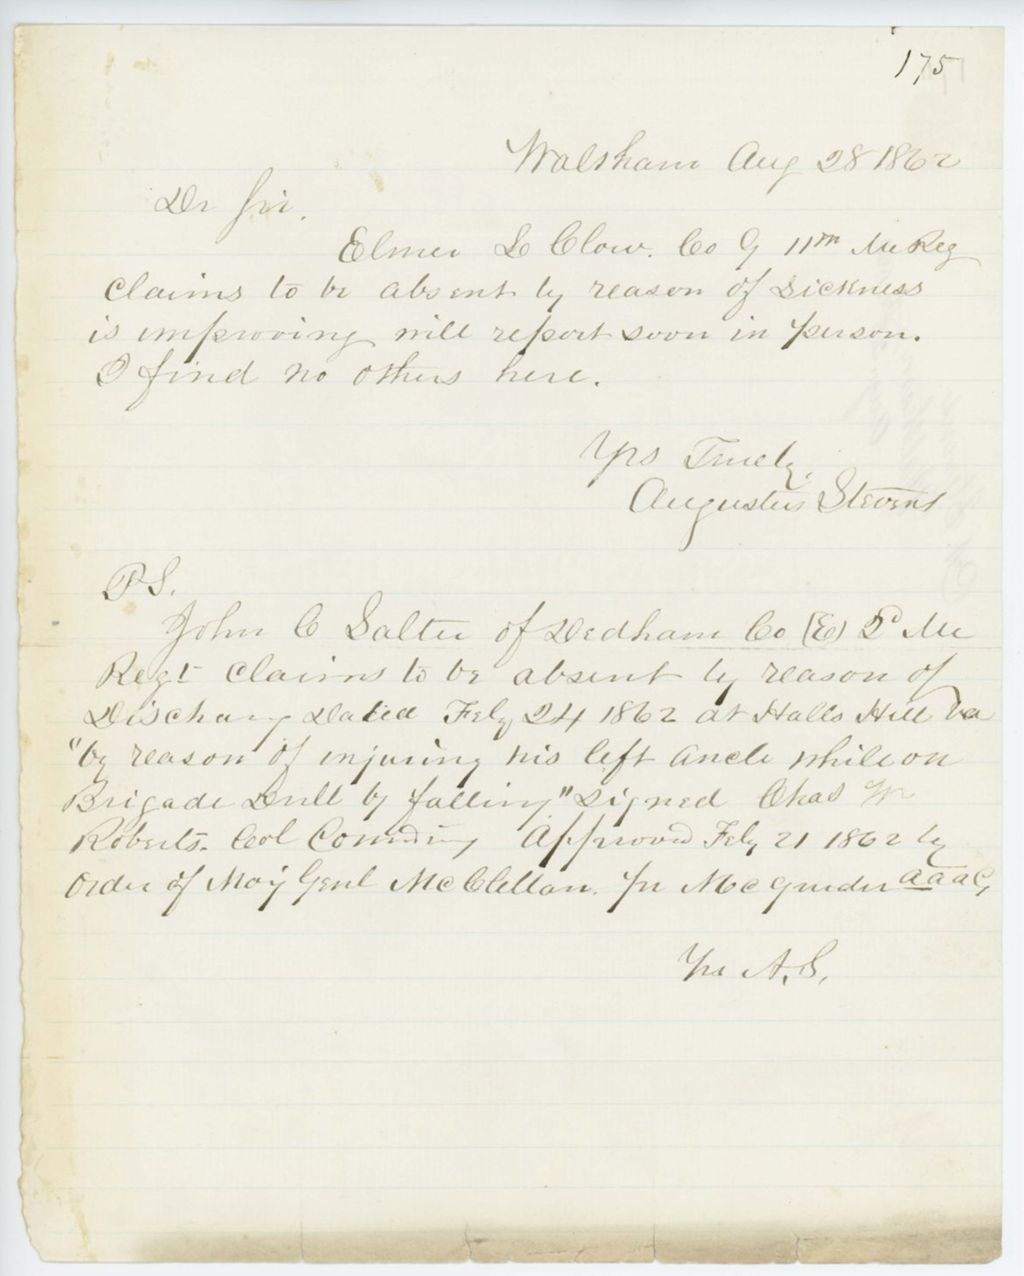 175
Waltham Aug 28 1862
Dr Sir.
Elmer L Clow. Co G 11th Me Reg
claims to be absent by reason of sickness
is improving will report soon in person.
I find no others here.
Yrs Truely,
Augustus Stevens
P S.
John C Salter of Dedham Co (E) 2d Me
Regt claims to be absent by reason of
Discharg Dated Feby 24 1862 at Halls Hill Va
"by reason of injuring his left ancle while on
Brigade Drill by falling" Signed Chas W
Roberts. Col Comding Approved Feby 21 1862 by
Order of Maj Genl McClellan. McGruder A A A G,
Yrs A. S.